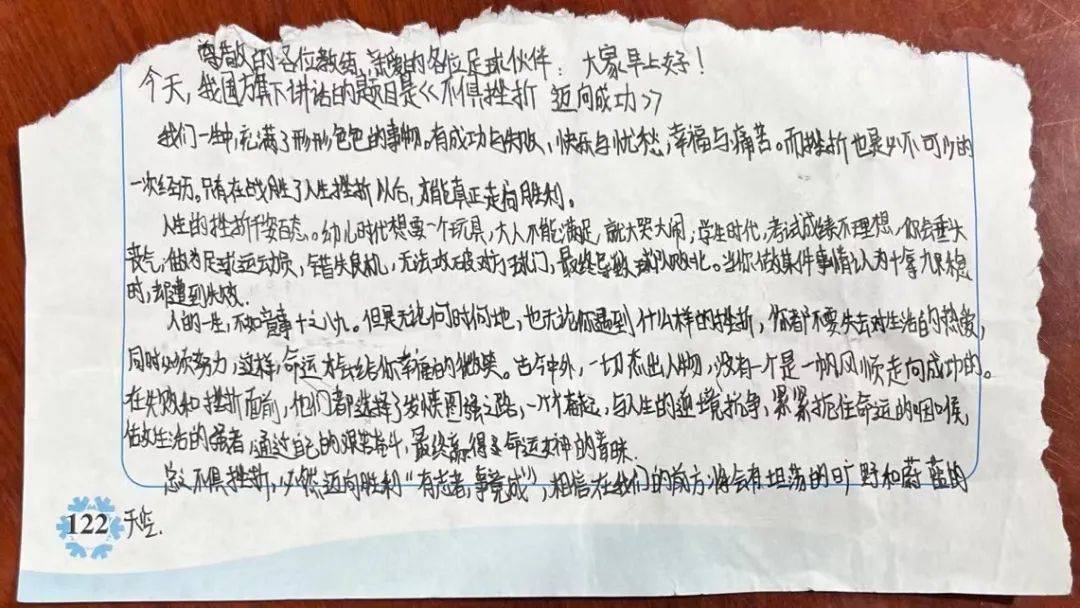 尊敬的各位教练,亲爱的各位足球伙伴: 大家早上好!
今天,我国旗下讲话的题目是《不俱挫折 迈向成功》
我们一生中,充满了形形色色的事物。有成功与失败、快乐与忧愁,幸福与痛苦。而挫折也是必不可少的
一次经历。只有在战胜了人生挫折以后,才能真正走向胜利。
人生的挫折千姿百态。幼儿时代想要一个玩具,大人不能满足,就大哭大闹,学生时代,考试成绩不理想,你会垂头
丧气,做为足球运动员,错失良机,无法攻破对方球门,最终导致球队败北。当你做某件事情认为十拿九稳
时,却遭到失败.
人的一生,不如意事十之八九。但是无论何时何地,也无论你遇到什么样的挫折,你都不要失去对生活的热爱,
同时必须努力,这样,命运才会给你幸福的微笑。古今中外,一切杰出人物,没有一个是一帆风顺走向成功的。
在失败和挫折面前,他们都选择了发愤图强之路,一个个奋起,与人生的逆境抗争,紧紧扼住命运的咽喉,
做生活的强者,通过自己的艰苦奋斗,最终赢得了命运女神的青睐.
总之不俱挫折,必然迈向胜利"有志者,事竟成",相信在我们的前方将会有坦荡的旷野和蔚蓝的
天空.
122